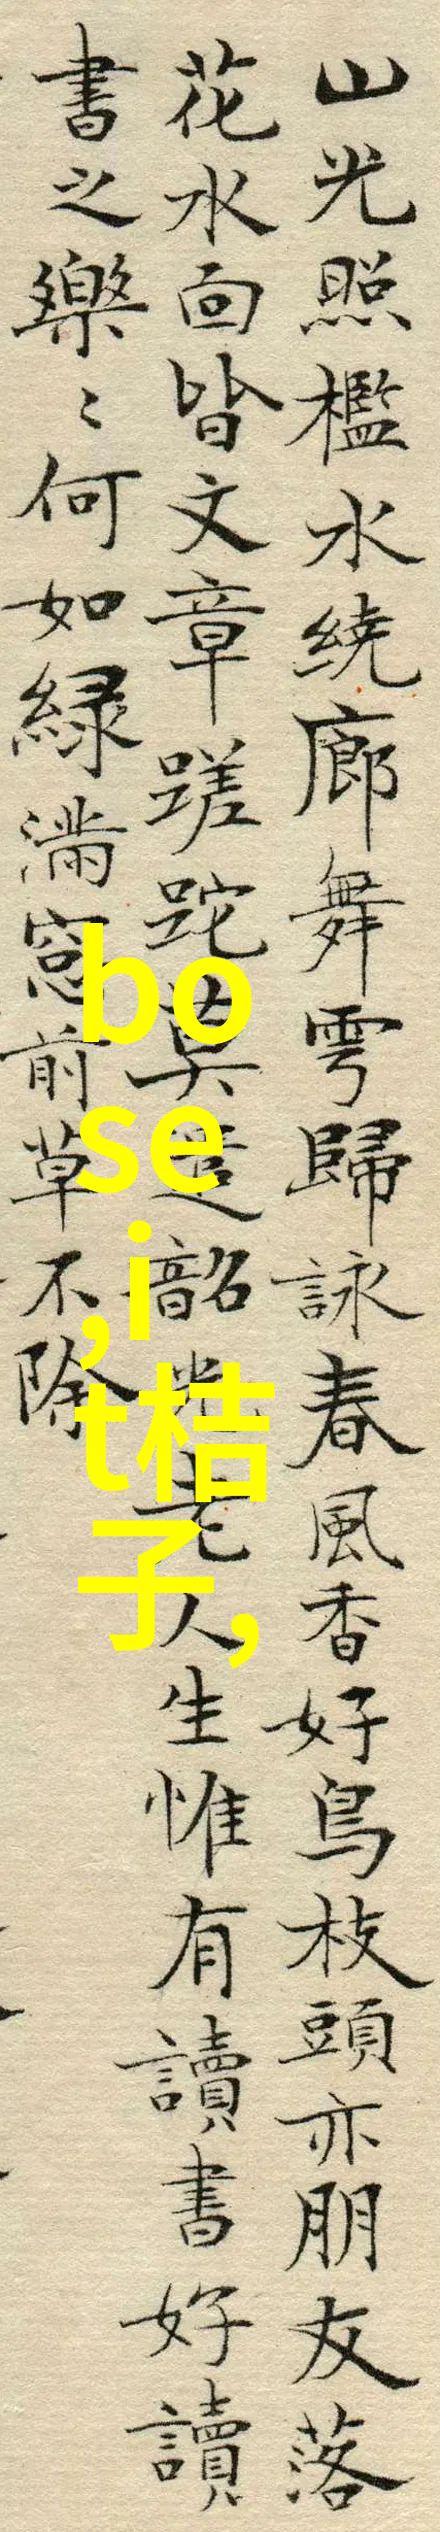 山光照檻水繞廊舞雩歸詠春風香好鳥枝頭亦朋友落
花水面皆文章蹉跎莫遣韶光老人生惟有讀書好讀
書之樂〻何如綠滿窓前草不除
bo
se
,i
t桔
子,